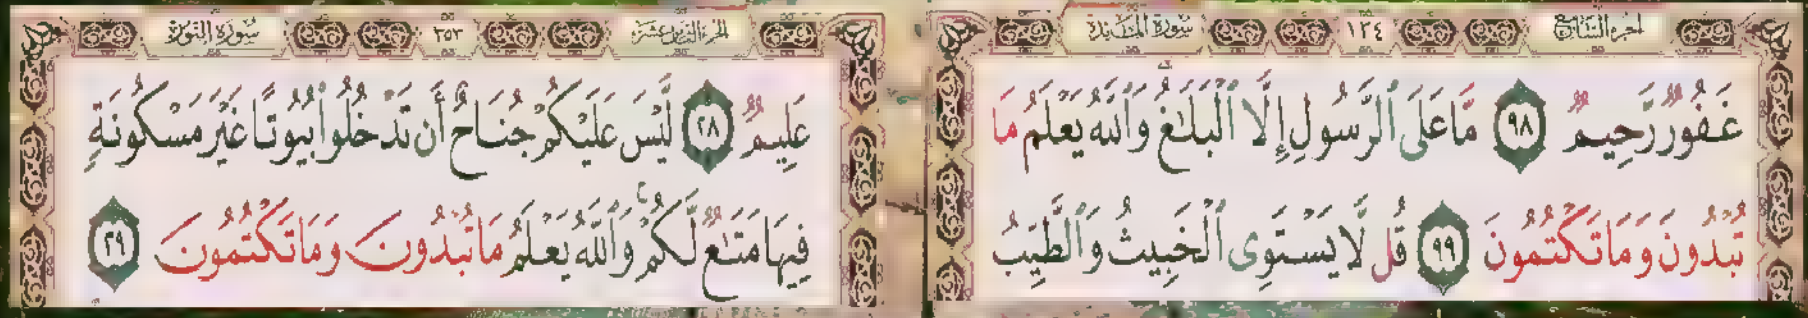 الجزء السابع ١٢٤ سورة المائدة
غَفُورٌ رَّحِيمٌ ٩٨ مَّا عَلَى ٱلرَّسُولِ إِلَّا ٱلْبَلَٰغُ وَٱللَّهُ يَعْلَمُ مَا
تُبْدُونَ وَمَا تَكْتُمُونَ ٩٩ قُل لَّا يَسْتَوِى ٱلْخَبِيثُ وَٱلطَّيِّبُ
الجزء الثامن عشر ٣٥٣ سورة النور
عَلِيمٌ ٢٨ لَّيْسَ عَلَيْكُمْ جُنَاحٌ أَن تَدْخُلُوا۟ بُيُوتًا غَيْرَ مَسْكُونَةٍ
فِيهَا مَتَٰعٌ لَّكُمْ وَٱللَّهُ يَعْلَمُ مَا تُبْدُونَ وَمَا تَكْتُمُونَ ٢٩